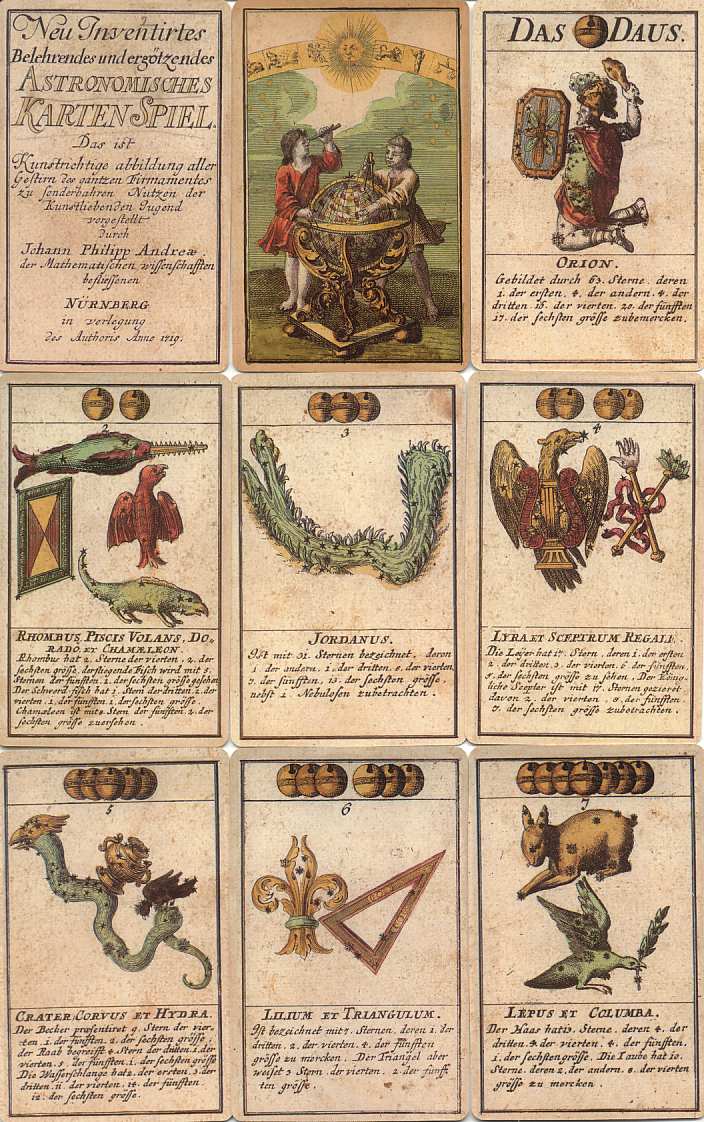 Neu Inventirtes
Belehrendes und ergötzendes
ASTRONOMISCHES
KARTEN SPIEL.
Das ist
Kunstrichtige abbildung aller
Gestirn des gäntzen Firmamentes
zu sonderbahren Nutzen der
Kunstliebenden Jugend
vorgestellt
durch
Johann Philipp Andreæ.
der Mathematischen wissenschafften
beflissenen
NÜRNBERG
in verlegung
des Authoris Anno 1719.
DAS DAUS.
ORION.
Gebildet durch 63. Sterne. deren
1. der ersten. 4. der andern. 4. der
dritten. 15. der vierten. 20. der fünfften
17. der sechsten grösse zubemercken.
2
RHOMBUS, PISCIS VOLANS, DO-
RADO, ET CHAMÆLEON.
Rhombus hat 2. Sterne der vierten. 2. der
sechsten grösse. der fliegende Fisch wird mit 5.
Sternen der fünfften. 1. der sechsten grösse gesehen
Der Schwerd fisch hat 1. Stern der dritten. 2. der
vierten. 1. der fünfften. 1. der sechsten grösse.
Chamæleon ist mit 8. Stern der fünfften. 2. der
sechsten grösse zuersehen.
3
JORDANUS.
Ist mit 31. Sternen bezeichnet. deren
1. der andern. 1. der dritten. 8. der vierten
7. der fünfften. 13. der sechsten grösse.
nebst 1 Nebulosen zubetrachten.
4
LYRA ET SCEPTRUM REGALE.
Die Leyer hat 17. Stern. deren 1. der ersten
2. der dritten. 3. der vierten. 6 der fünfften
5. der sechsten grösse zu sehen. Der König-
liche Scepter ist mit 17. Sternen gezieret
davon 2. der vierten. 8. der fünfften.
7. der sechsten grösse zubetrachten.
5
CRATER, CORVUS ET HYDRA.
Der Becher præsentiret 9. Stern der vier-
ten. 1. der fünfften. 2. der sechsten grösse;
der Raab begreifft 4. Stern der dritten. 1. der
vierten. 5. der fünfften. 1. der sechsten grösse
Die Wasserschlange hat 2. der ersten. 3. der
dritten. 11. der vierten. 14. der fünfften
12. der sechsten grösse.
6
LILIUM ET TRIANGULUM.
Ist bezeichnet mit 7. Sternen. deren 1. der
dritten. 2. der vierten. 4. der fünfften
grösse zu mercken. Der Triangel aber
weiset 3 Stern. der vierten. 2. der fünff
ten grösse.
7
LEPUS ET COLUMBA.
Der Haas hat 13. Sterne. deren 4. der
dritten. 4. der vierten. 4. der fünfften.
1. der sechsten grösse. Die Taube hat 10.
Sterne. deren 2. der andern. 8. der vierten
grösse zu mercken.